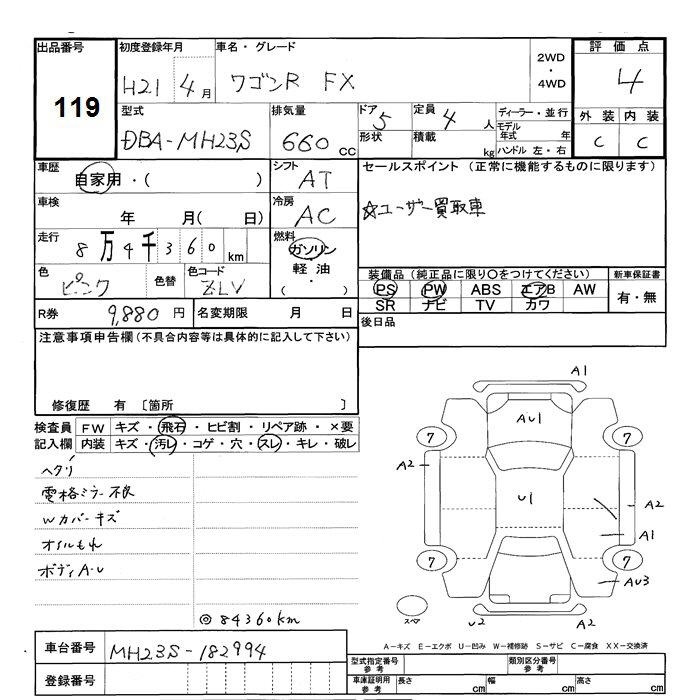 出品番号 初度登録年月 車名・グレード 2WD・4WD 評価点
119 H21 4月 ワゴンR FX 4
型式 排気量 ドア 5 定員 4人 ディーラー・並行 外装 内装
DBA-MH23S 660cc 形状 積載 kg モデル年式 年 C C
ハンドル 左・右
車歴 自家用・( ) シフト AT セールスポイント(正常に機能するものに限ります)
車検 年 月( 日) 冷房 AC ☆ユーザー買取車
走行 8万4千360km 燃料 ガソリン 軽油 ( ・ )
色 ピンク 色替 色コード ZLV 装備品(純正品に限り○をつけてください) 新車保証書
PS PW ABS エアB AW 有・無
SR ナビ TV カワ
R券 9,880円 名変期限 月 日 後日品
注意事項申告欄(不具合内容等は具体的に記入して下さい)
修復歴 有 〔箇所 〕
検査員 FW キズ・飛石・ヒビ割・リペア跡・×要
記入欄 内装 キズ・汚レ・コゲ・穴・スレ・キレ・破レ
ヘタリ
電格ミラー不良
Wカバーキズ
オイルもれ
ボディA・U
◎84360km
A1
AU1
7 7
A2
U1
A2
A1
7 7
AU3
スペア U2 A2
A-キズ E-エクボ U-凹み W-補修跡 S-サビ C-腐食 XX-交換済
車台番号 MH23S-182994 型式指定番号 参考 類別区分番号 参考
登録番号 車庫証明用 参考 長さ cm 幅 cm 高さ cm